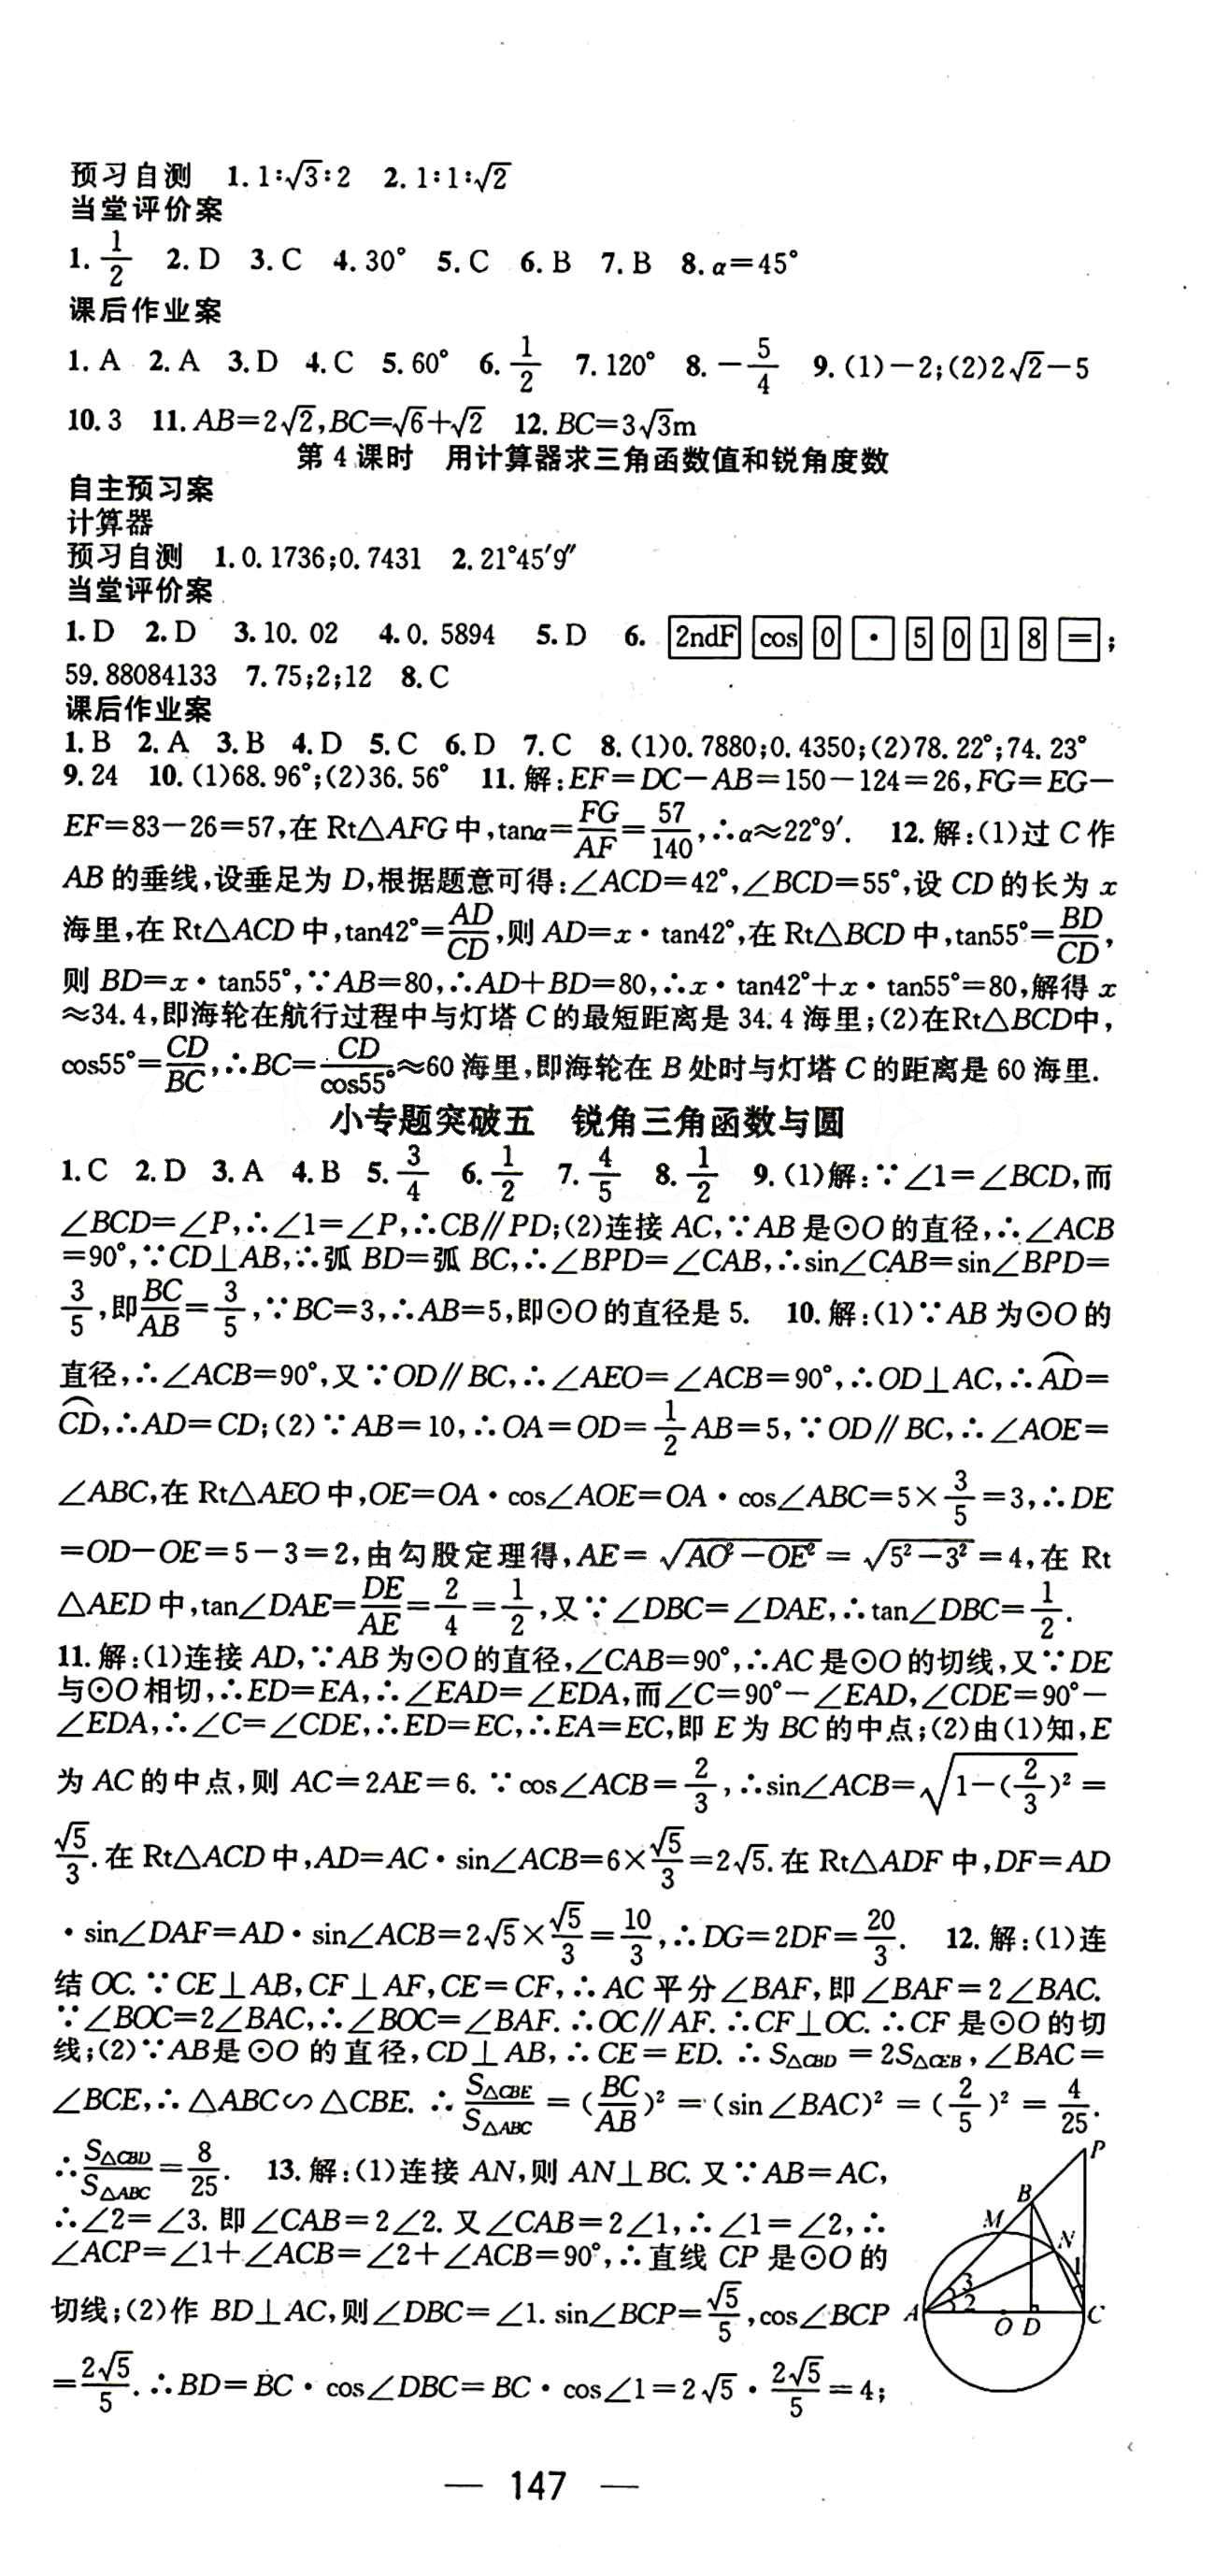 预习自测 1. 1∶√3∶2 2. 1∶1∶√2
当堂评价案
1. 1/2 2. D 3. C 4. 30° 5. C 6. B 7. B 8. α=45°
课后作业案
1. A 2. A 3. D 4. C 5. 60° 6. 1/2 7. 120° 8. -5/4 9. (1)-2;(2)2√2-5
10. 3 11. AB=2√2,BC=√6+√2 12. BC=3√3m
第 4 课时 用计算器求三角函数值和锐角度数
自主预习案
计算器
预习自测 1. 0.1736;0.7431 2. 21°45′9″
当堂评价案
1. D 2. D 3. 10.02 4. 0.5894 5. D 6. 2ndF cos 0 · 5 0 1 8 = ;
59.88084133 7. 75;2;12 8. C
课后作业案
1. B 2. A 3. B 4. D 5. C 6. D 7. C 8. (1)0.7880;0.4350;(2)78.22°;74.23°
9. 24 10. (1)68.96°;(2)36.56° 11. 解:EF=DC-AB=150-124=26,FG=EG-
EF=83-26=57,在 Rt△AFG 中,tanα=FG/AF=57/140,∴α≈22°9′. 12. 解:(1)过 C 作
AB 的垂线,设垂足为 D,根据题意可得:∠ACD=42°,∠BCD=55°,设 CD 的长为 x
海里,在 Rt△ACD 中,tan42°=AD/CD,则 AD=x·tan42°,在 Rt△BCD 中,tan55°=BD/CD,
则 BD=x·tan55°,∵AB=80,∴AD+BD=80,∴x·tan42°+x·tan55°=80,解得 x
≈34.4,即海轮在航行过程中与灯塔 C 的最短距离是 34.4 海里;(2)在Rt△BCD中,
cos55°=CD/BC,∴BC=CD/cos55°≈60 海里,即海轮在 B 处时与灯塔 C 的距离是 60 海里.
小专题突破五 锐角三角函数与圆
1. C 2. D 3. A 4. B 5. 3/4 6. 1/2 7. 4/5 8. 1/2 9. (1)解:∵∠1=∠BCD,而
∠BCD=∠P,∴∠1=∠P,∴CB∥PD;(2)连接 AC,∵AB 是⊙O 的直径,∴∠ACB
=90°,∵CD⊥AB,∴弧 BD=弧 BC,∴∠BPD=∠CAB,∴sin∠CAB=sin∠BPD=
3/5,即BC/AB=3/5,∵BC=3,∴AB=5,即⊙O 的直径是 5. 10. 解:(1)∵AB 为⊙O 的
直径,∴∠ACB=90°,又∵OD∥BC,∴∠AEO=∠ACB=90°,∴OD⊥AC,∴⌒AD=
⌒CD,∴AD=CD;(2)∵AB=10,∴OA=OD=1/2AB=5,∵OD∥BC,∴∠AOE=
∠ABC,在 Rt△AEO 中,OE=OA·cos∠AOE=OA·cos∠ABC=5×3/5=3,∴DE
=OD-OE=5-3=2,由勾股定理得,AE=√(AO²-OE²)=√(5²-3²)=4,在 Rt
△AED 中,tan∠DAE=DE/AE=2/4=1/2,又∵∠DBC=∠DAE,∴tan∠DBC=1/2.
11. 解:(1)连接 AD,∵AB 为⊙O 的直径,∠CAB=90°,∴AC 是⊙O 的切线,又∵DE
与⊙O 相切,∴ED=EA,∴∠EAD=∠EDA,而∠C=90°-∠EAD,∠CDE=90°-
∠EDA,∴∠C=∠CDE,∴ED=EC,∴EA=EC,即 E 为 BC 的中点;(2)由(1)知,E
为 AC 的中点,则 AC=2AE=6. ∵cos∠ACB=2/3,∴sin∠ACB=√(1-(2/3)²)=
√5/3. 在 Rt△ACD 中,AD=AC·sin∠ACB=6×√5/3=2√5. 在 Rt△ADF 中,DF=AD
·sin∠DAF=AD·sin∠ACB=2√5×√5/3=10/3,∴DG=2DF=20/3. 12. 解:(1)连
结 OC. ∵CE⊥AB,CF⊥AF,CE=CF,∴AC 平分∠BAF,即∠BAF=2∠BAC.
∵∠BOC=2∠BAC,∴∠BOC=∠BAF. ∴OC∥AF. ∴CF⊥OC. ∴CF 是⊙O 的切
线;(2)∵AB是⊙O 的直径,CD⊥AB,∴CE=ED. ∴S△CBD=2S△CEB,∠BAC=
∠BCE,∴△ABC∽△CBE. ∴S△CBE/S△ABC=(BC/AB)²=(sin∠BAC)²=(2/5)²=4/25.
∴S△CBD/S△ABC=8/25. 13. 解:(1)连接 AN,则 AN⊥BC. 又∵AB=AC,
∴∠2=∠3. 即∠CAB=2∠2. 又∠CAB=2∠1,∴∠1=∠2,∴
∠ACP=∠1+∠ACB=∠2+∠ACB=90°,∴直线 CP 是⊙O 的
切线;(2)作 BD⊥AC,则∠DBC=∠1. sin∠BCP=√5/5,cos∠BCP
=2√5/5. ∴BD=BC·cos∠DBC=BC·cos∠1=2√5·2√5/5=4;
P
B
M
N
1
3
2
A
O D
C
— 147 —